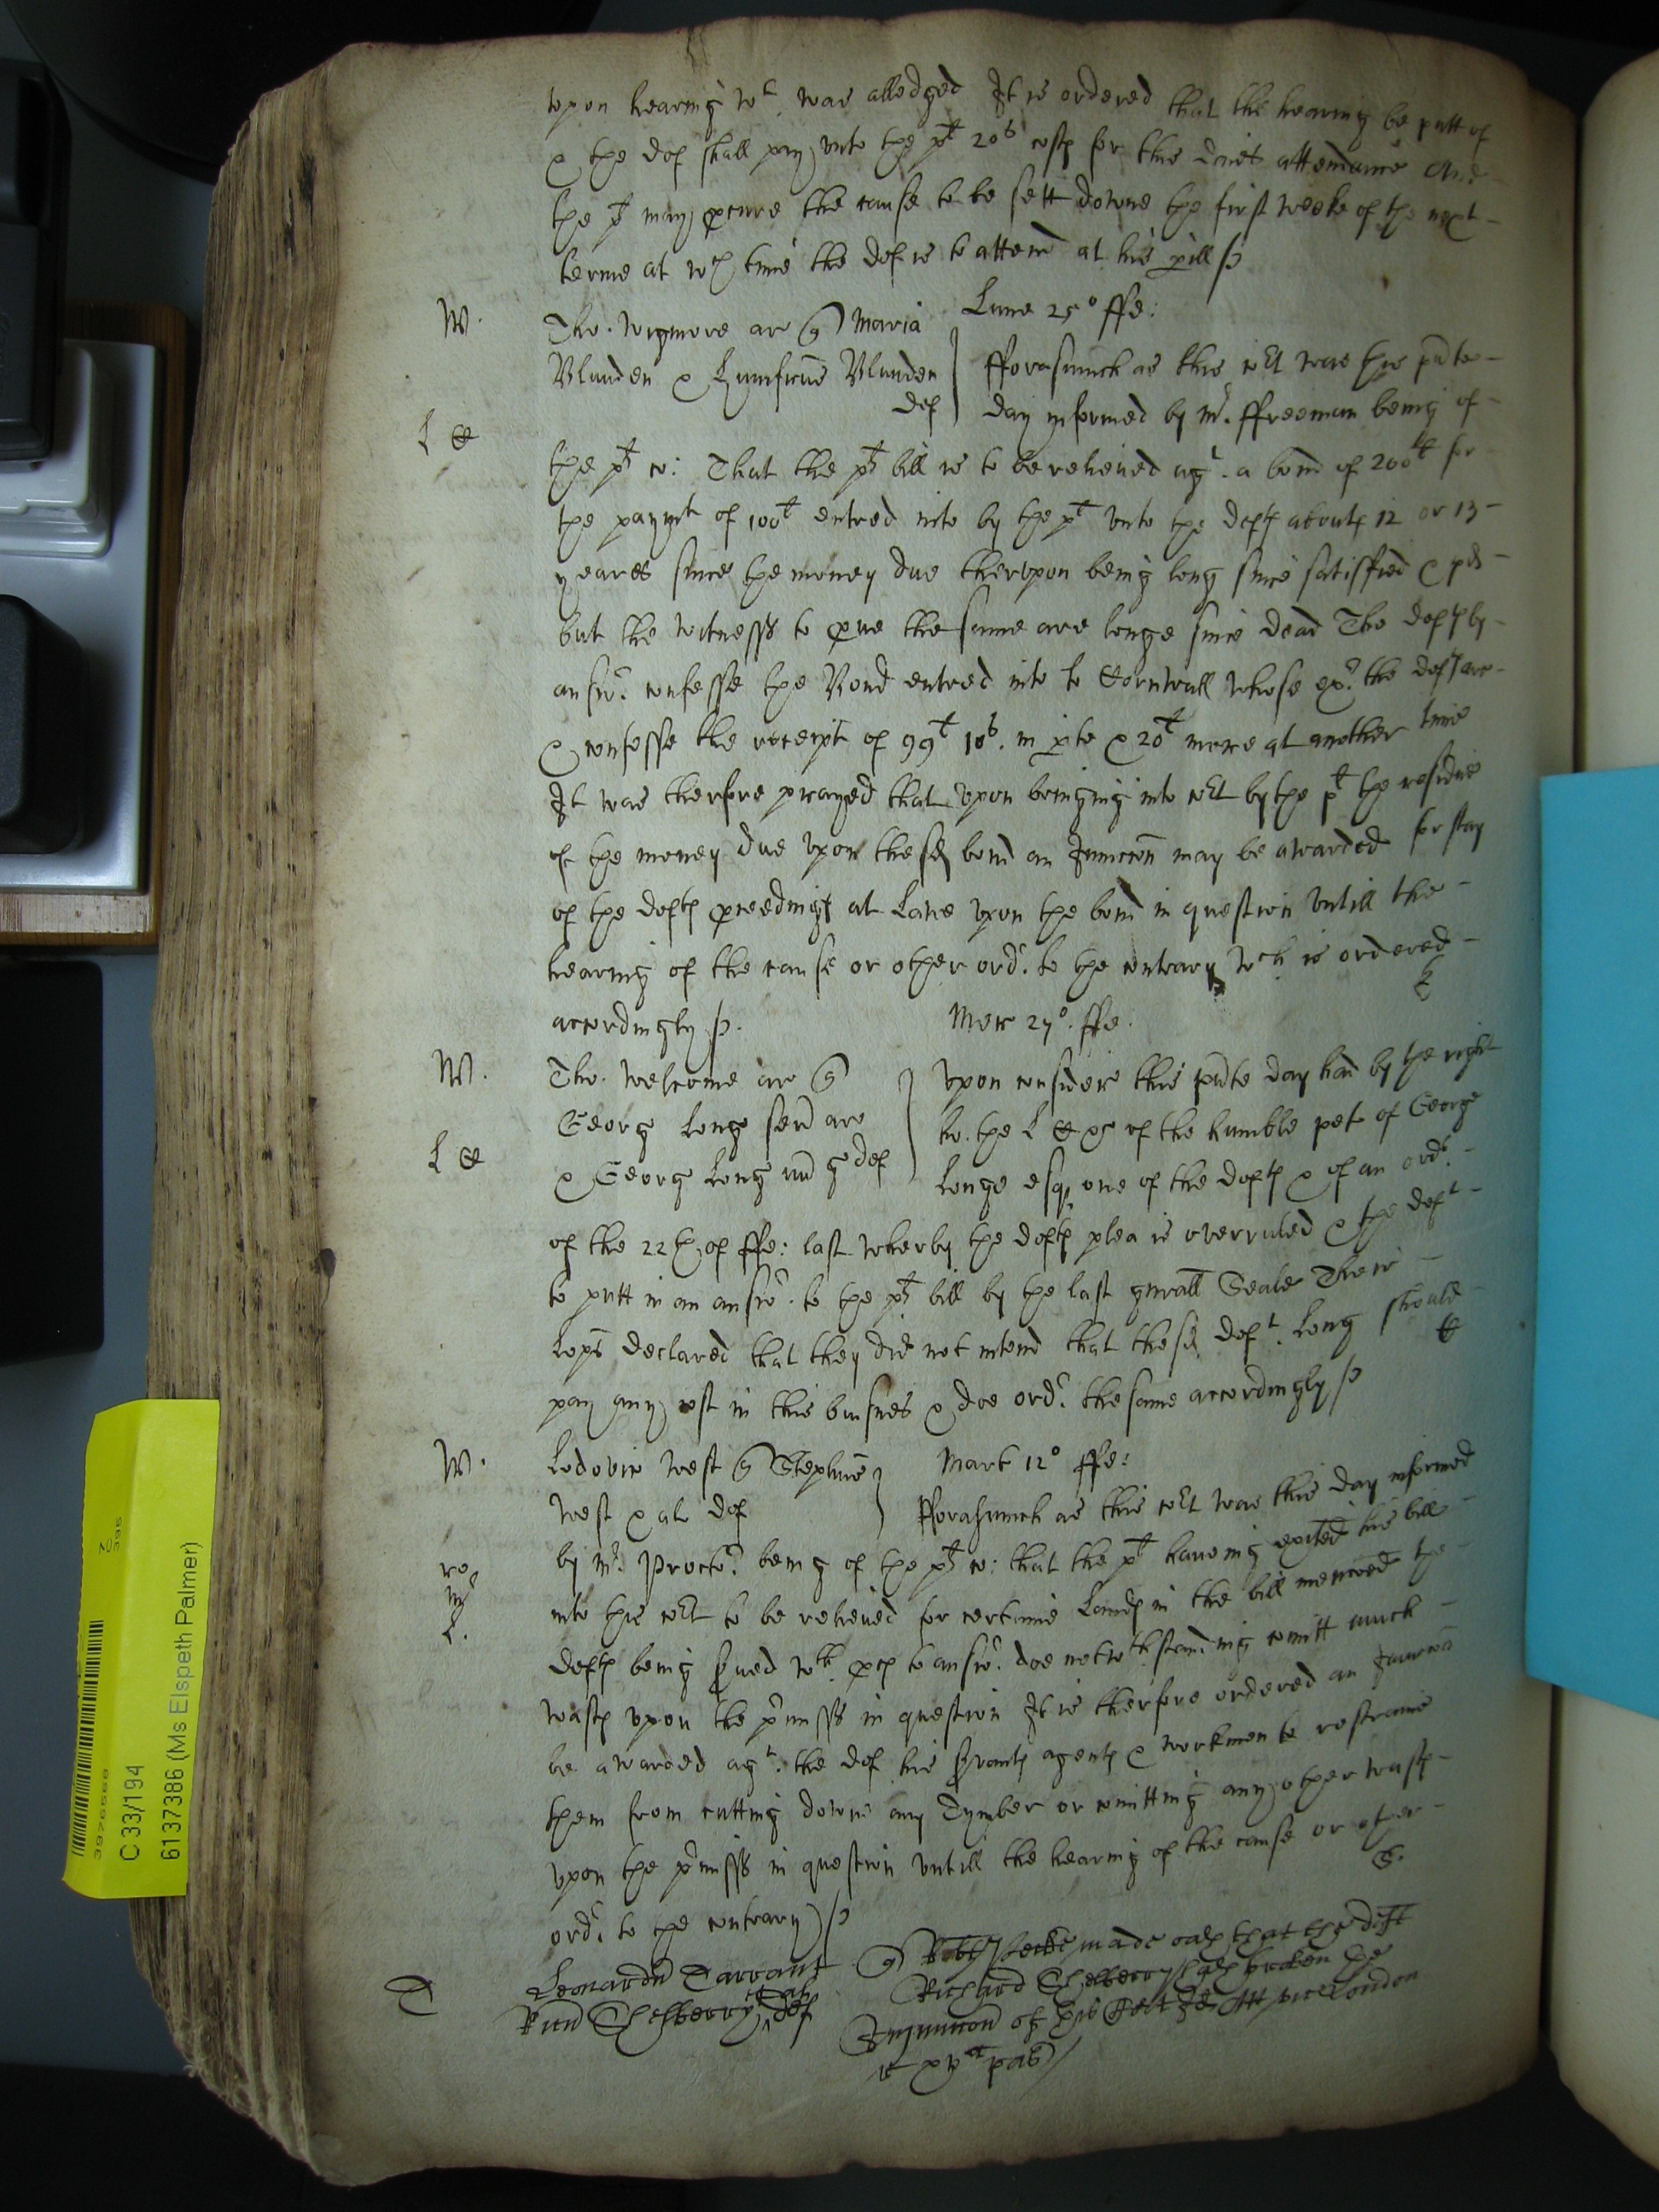 vpon hearing wt was alledged It is ordered that the hearing be putt of
& the def shall pay vnto the plt 20s costs for this daies attendance And
the pl may procure the cause to be sett downe the first weeke of the next
terme at wch time the def is to attend at his perill
Lune 25o ffe:
W. Tho. Wigmore ar Maria
Blunden & Blunden def
fforasmuch as this Cort was this pnte
day informed by Mr. ffreeman being of
L C
the plts co: That the plts bill is to be releived agt. a bond of 200li for
the paymt of 100li entred into by the plt vnto the defts about 12 or 13
yeares since the money due therevpon being long since satisfied & pd
but the witnesses to prove the same are longe since dead The defts by
answr. confesse the Bond entred into to Cornwall whose exr. the defts are
& confesse the receipt of 99li 10s. in pte & 20li more at another time
It was therfore prayed that vpon bringing into Cort by the plt the residue
of the money due vpon the sd bond an Iniunccon may be awarded for stay
of the defts proceedings at Lawe vpon the bond in question vntill the
hearing of the cause or other ordr. to the contrary wch is ordered
accordingly
Merc 27o. ffe.
W. Tho. Welcome ar
George Long senr ar
& George Long iun g def
vpon consideracion this pnte day had by the right
ho. the L C of the humble pet of George
L C
Longe esqr one of the defts & of an ordr.
of the 22th of ffe: last wherby the defts plea is overruled & the deft
to putt in an answr. to the plts bill by the last generall Seale Their
Lops declared that they did not intend that the sd deft. Long should
pay any cost in this busines & doe ordr. the same accordingly
W. Lodovic West Stephm
West & al def
Mart 12o ffe:
fforasmuch as this Cort was this day informed
by Mr. Proctor. being of the plts co: that the plt haveing exited his bill
into this Cort to be releived for certaine Lands in the bill menconed the
L.
defts being served wth proces to answr. doe notwthstanding comitt much
wast vpon the premisses in question It is therfore ordered an Iniunccon
be awarded agt. the def his servants agents & workmen to restraine
them from cutting downe any Tymber or comitting any other wast
vpon the premisses in question vntill the hearing of the cause or other
S.
ordr. to the contrary
Leonardu Tarrant
Ricu Shelberry et al def
made oath that the deft
Richard Shelberry hath broken the
Iniunccon of this London
C 33/194
6137386 (Ms Elspeth Palmer)